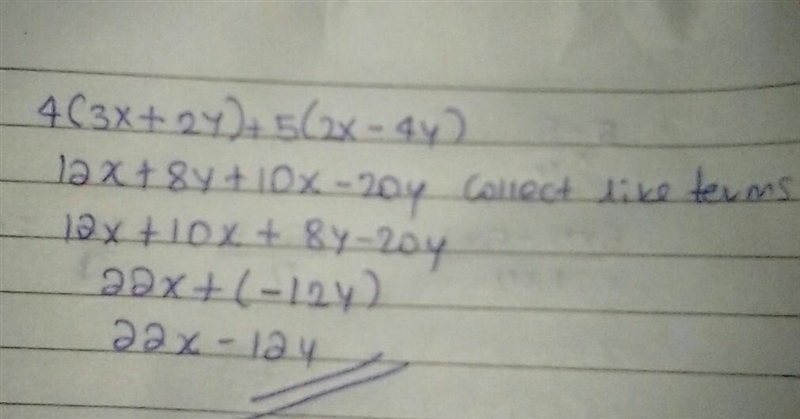 4(3x+2y)+5(2x-4y)
12x+8y+10x-20y collect like terms
12x+10x+8y-20y
22x+(-12y)
22x-12y